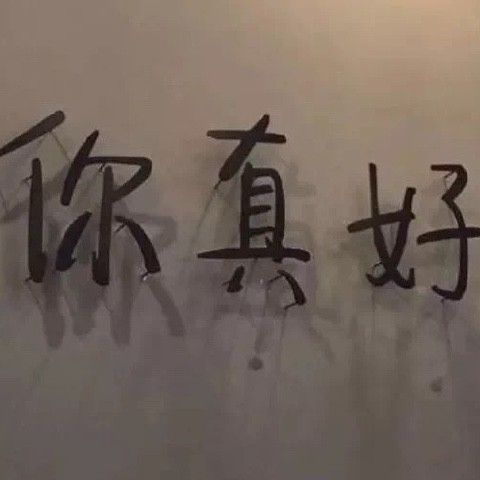 你真好